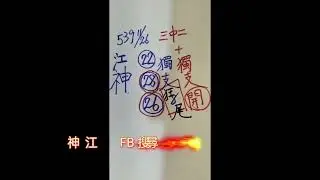 539 11/26 三中二
+
江神 22 獨支 獨支
28 狂尾 開
26
神江 FB 搜尋